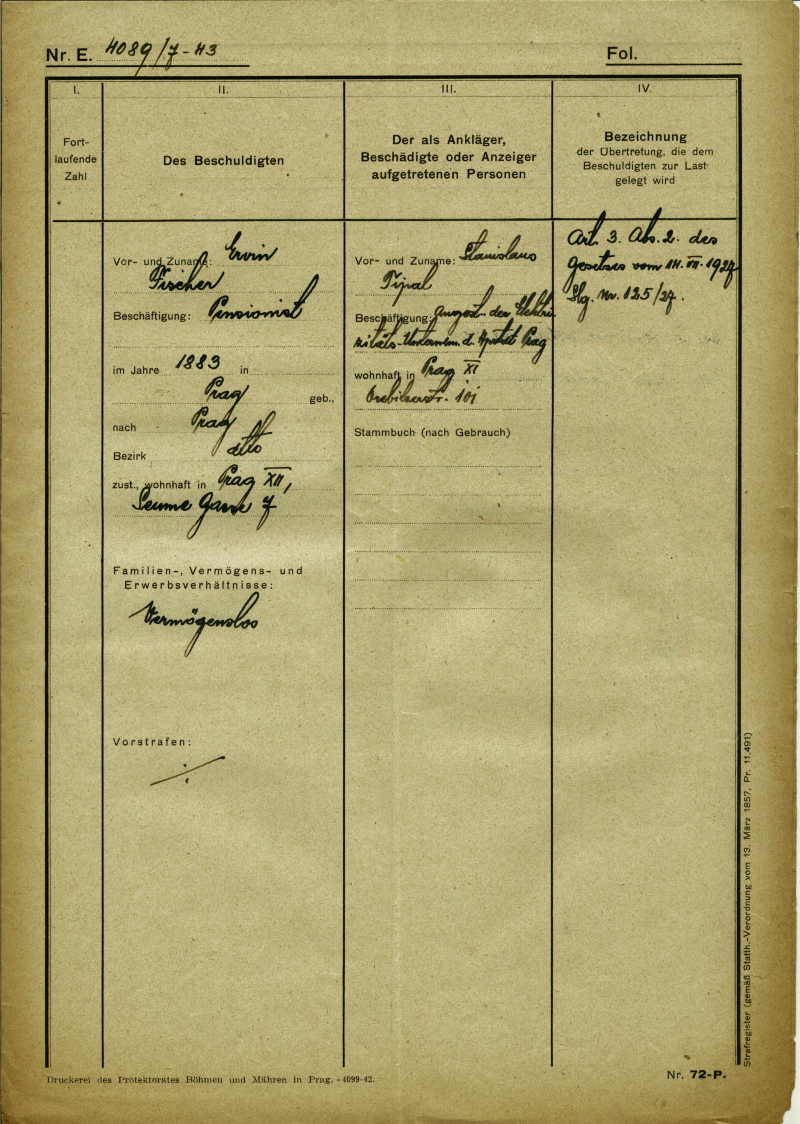 Nr. E. 4089/7-43
Fol.
I.
Fort-
laufende
Zahl
II.
Des Beschuldigten
III.
Der als Ankläger,
Beschädigte oder Anzeiger
aufgetretenen Personen
IV.
Bezeichnung
der Übertretung, die dem
Beschuldigten zur Last
gelegt wird
Vor- und Zuname: Ervin
Fischer
Beschäftigung: Pensionist
im Jahre 1883 in
Prag geb.,
nach Prag
Bezirk dtto
zust., wohnhaft in Prag XII,
Seume Gasse 7
Familien-, Vermögens- und
Erwerbsverhältnisse:
Vermögenslos
Vorstrafen:
Vor- und Zuname: Stanislaus
Típal
Beschäftigung: Angest. der Elektri
zitäts-Unternehm. d. Hptst. Prag
wohnhaft in Prag XI
101
Stammbuch (nach Gebrauch)
Art. 3. Abs. 2. des
Gesetzes vom 14. VII. 1927
Slg. Nr. 125/27.
Druckerei des Protektorates Böhmen und Mähren in Prag. - 4099-42.
Nr. 72-P.
Strafregister (gemäß Statth.-Verordnung vom 13. März 1857, Pr. 11.491)